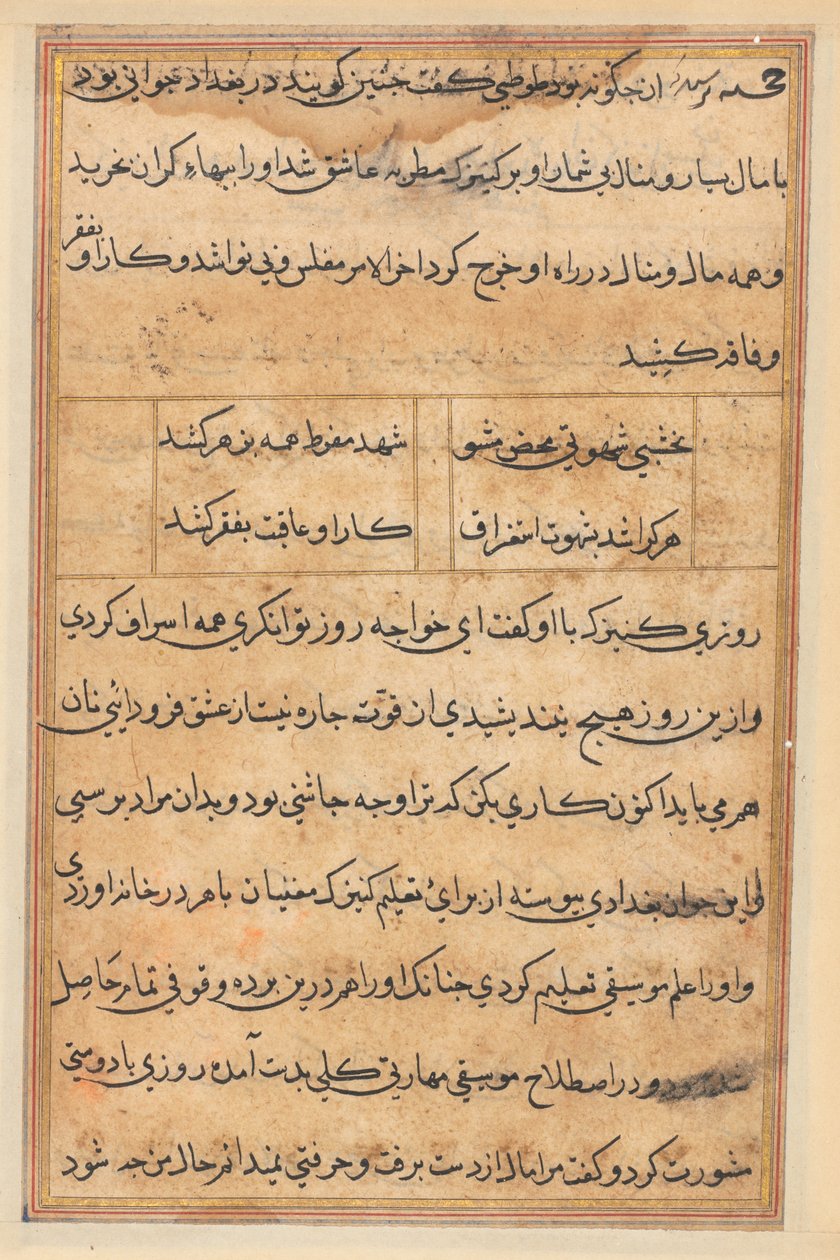 خجسته پرسید آن جکونه بود طوطی کفت جنین کویند در بغداد جوانی بود
با مال بسیار و منال بی شمار او بر کنیزک مطربه عاشق شد او را ببهاءِ کران بخرید
و همه مال و منال در راه او خرج کرد اخر الامر مفلس و بی نوا شد و کار او بفقر
و فاقه کشید
نخشبی شهوتی محض مشو
شهد مفرط همه بزهر کشد
هر کرا شد بشهوت استغراق
کار او عاقبت بفقر کشد
روزی کنیزک با او کفت ای خواجه روز توانکری همه اسراف کردی
و ازین روز هیج نیندیشیدی از قوّت جاره نیست از عشق فرود آئی نان
هم می باید اکنون کاری بکن که ترا وجه جاشتی بود و بدان مراد برسی
و این جوان بغدادی بیوسته از برایٔ تعلیم کنیزک مغنیان باهر در خانه اوردی
و او را علم موسیقی تعلیم کردی جنانک او را هم درین برده وقوفی تمام حَاصِل
شده بود و در اصطلاح موسیقی مهارتی کلی بدست آمده روزی با دوستی
مشورت کرد و کفت مرا مال از دست برفت و حرفتی نمیدانم حال من جه شود